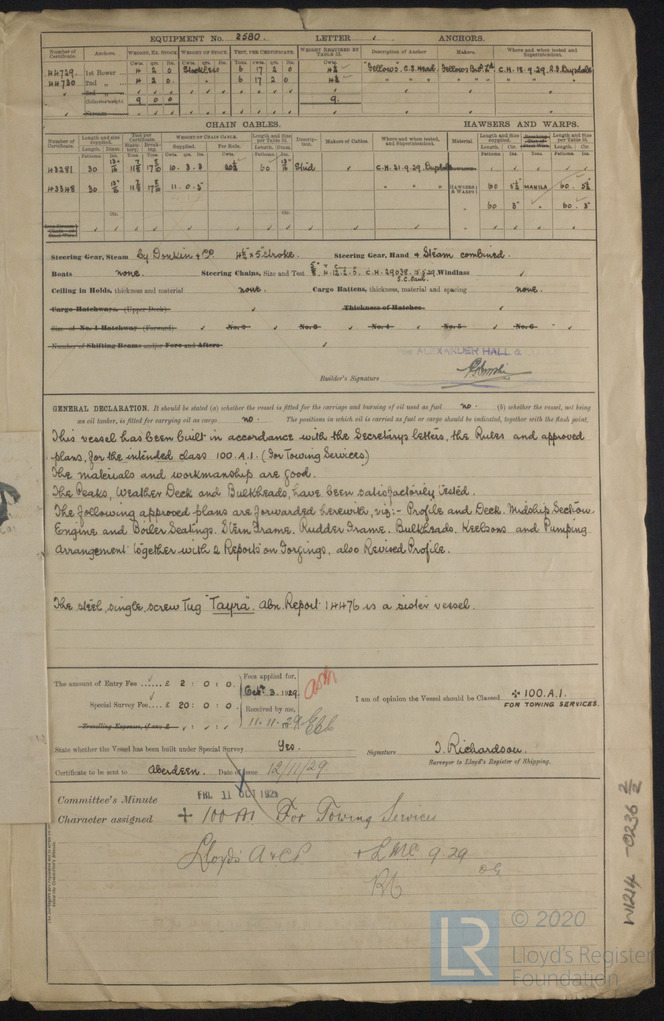 EQUIPMENT No. 2580. LETTER ANCHORS.
Number of Certificate. Anchors. WEIGHT, EX. STOCK WEIGHT OF STOCK. TEST, PER CERTIFICATE. WEIGHT REQUIRED BY TABLE 53. Description of Anchor Makers. Where and when tested and Superintendent.
Cwts. qrs. lbs. Cwts. qrs. lbs. Tons. cwts. qrs. lbs. Cwts.
44729. 1st Bower 4 2 0 Stockless 6 17 2 0 4½ Fellows. C.S. Head. Fellows Bros Ltd C.H. 18.9.29.
44730 2nd " 4 2 0 6 17 2 0 4½
3rd "
Collective weight 9 0 0 9.
Stream
CHAIN CABLES. HAWSERS AND WARPS.
Number of Certificate. Length and size supplied. Test per Certificate. WEIGHT OF CHAIN CABLE. Length and size per Table 53. Description. Makers of Cables. Where and when tested, and Superintendent. Material Length and size supplied. Length and size per Table 53.
Length. Diam. Supplied. Per Rule. Length. Diam. Length. Cir. Length. Cir.
43281 30 10. 3. 3 20½ 60 Stud C.H. 21.9.29.
43348 30 11. 0. 5 " " " HAWSERS & WARPS 60 5½ MANILA 60. 5½
60 3" 60. 3"
Steering Gear, Steam by Donkin & Co. 4½ x 5" stroke. Steering Gear, Hand & Steam combined.
Boats none. Steering Chains, Size and Test C.H. 29038. Windlass
Ceiling in Holds, thickness and material none. Cargo Battens, thickness, material and spacing none.
Cargo Hatchways. (Upper Deck) Thickness of Hatches
Size of No. 1 Hatchway (Forward) No. 2 No. 3 No. 4 No. 5 No. 6
Number of Shifting Beams and/or Fore and Afters
ALEXANDER HALL &
Builder's Signature
GENERAL DECLARATION. It should be stated (a) whether the vessel is fitted for the carriage and burning of oil used as fuel no. (b) whether the vessel, not being
an oil tanker, is fitted for carrying oil as cargo no. The positions in which oil is carried as fuel or cargo should be indicated, together with the flash point.
This vessel has been built in accordance with the Secretarys letters, the Rules and approved
plans, for the intended class 100.A.1. (For Towing Services)
The materials and workmanship are good.
The Peaks, Weather Deck and Bulkheads, have been satisfactorily tested.
The following approved plans are forwarded herewith, viz:- Profile and Deck. Midship Section.
Engine and Boiler Seatings. Stern Frame. Rudder Frame. Bulkheads. Keelsons and Pumping
Arrangement together with 2 Reports on Forgings, also Revised Profile.
The steel, single, screw Tug "Tayra". Abn. Report 14476 is a sister vessel.
The amount of Entry Fee £ 2 : 0 : 0 Fees applied for,
Oct 3 1929.
Special Survey Fee £ 20 : 0 : 0 Received by me,
Travelling Expenses, if any £ 11.11.29
I am of opinion the Vessel should be Classed + 100.A.1.
FOR TOWING SERVICES.
State whether the Vessel has been built under Special Survey Yes. Signature J. Richardson.
Surveyor to Lloyd's Register of Shipping.
Certificate to be sent to Aberdeen. Date of issue 12/11/29.
Committee's Minute FRI. 11 OCT 1929
Character assigned + 100 A1 For Towing Services
Lloyd's A & CP + LMC 9.29
W1214-0236 2/2
© 2020
LR Lloyd's Register
Foundation